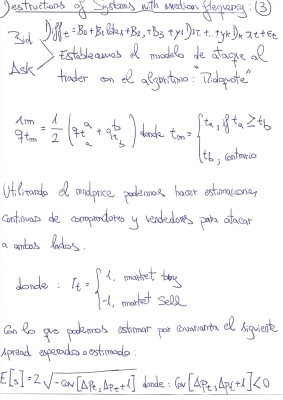 Destructions of Systems with median frequency: (3)
Bid
Ask
Diff t = B0 + B1 + B2, + B3 + y1 D1t + .. + yk Dk xt + et
Establecemos el modelo de ataque al
trader con el algoritmo: "Ridquote"
q tm = 1/2 ( q ta a + q tb b ) donde tm = { ta, if ta ≥ tb
tb, contrario
Utilizando el midprice podemos hacer estimaciones
continuas de compradores y vendedores para atacar
a ambos lados.
donde: It = { 1, market buy
-1, market sell
Con lo que podemos estimar por covarianza el siguiente
spread esperado o estimado:
E[s] = 2 √-Cov[Δpt, Δpt+1] donde: Cov[Δpt, Δpt+1] < 0